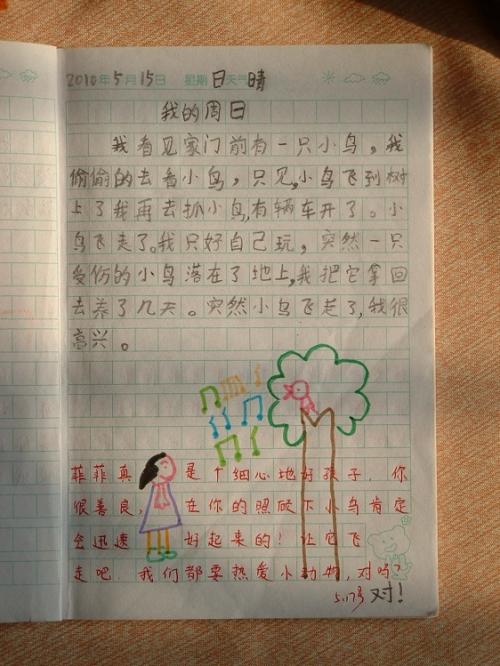 2010年5月15日 星期日 天气晴
我的周日
我看见家门前有一只小鸟，我
偷偷的去看小鸟，只见，小鸟飞到树
上了我再去抓小鸟，有辆车开了。小
鸟飞走了。我只好自己玩，突然一只
受伤的小鸟落在了地上，我把它拿回
去养了几天。突然小鸟飞走了，我很
高兴。
菲菲真是个细心地好孩子，你
很善良，在你的照顾下小鸟肯定
会迅速好起来的！让它飞
走吧，我们都要热爱小动物，对吗？
5.17号 对！